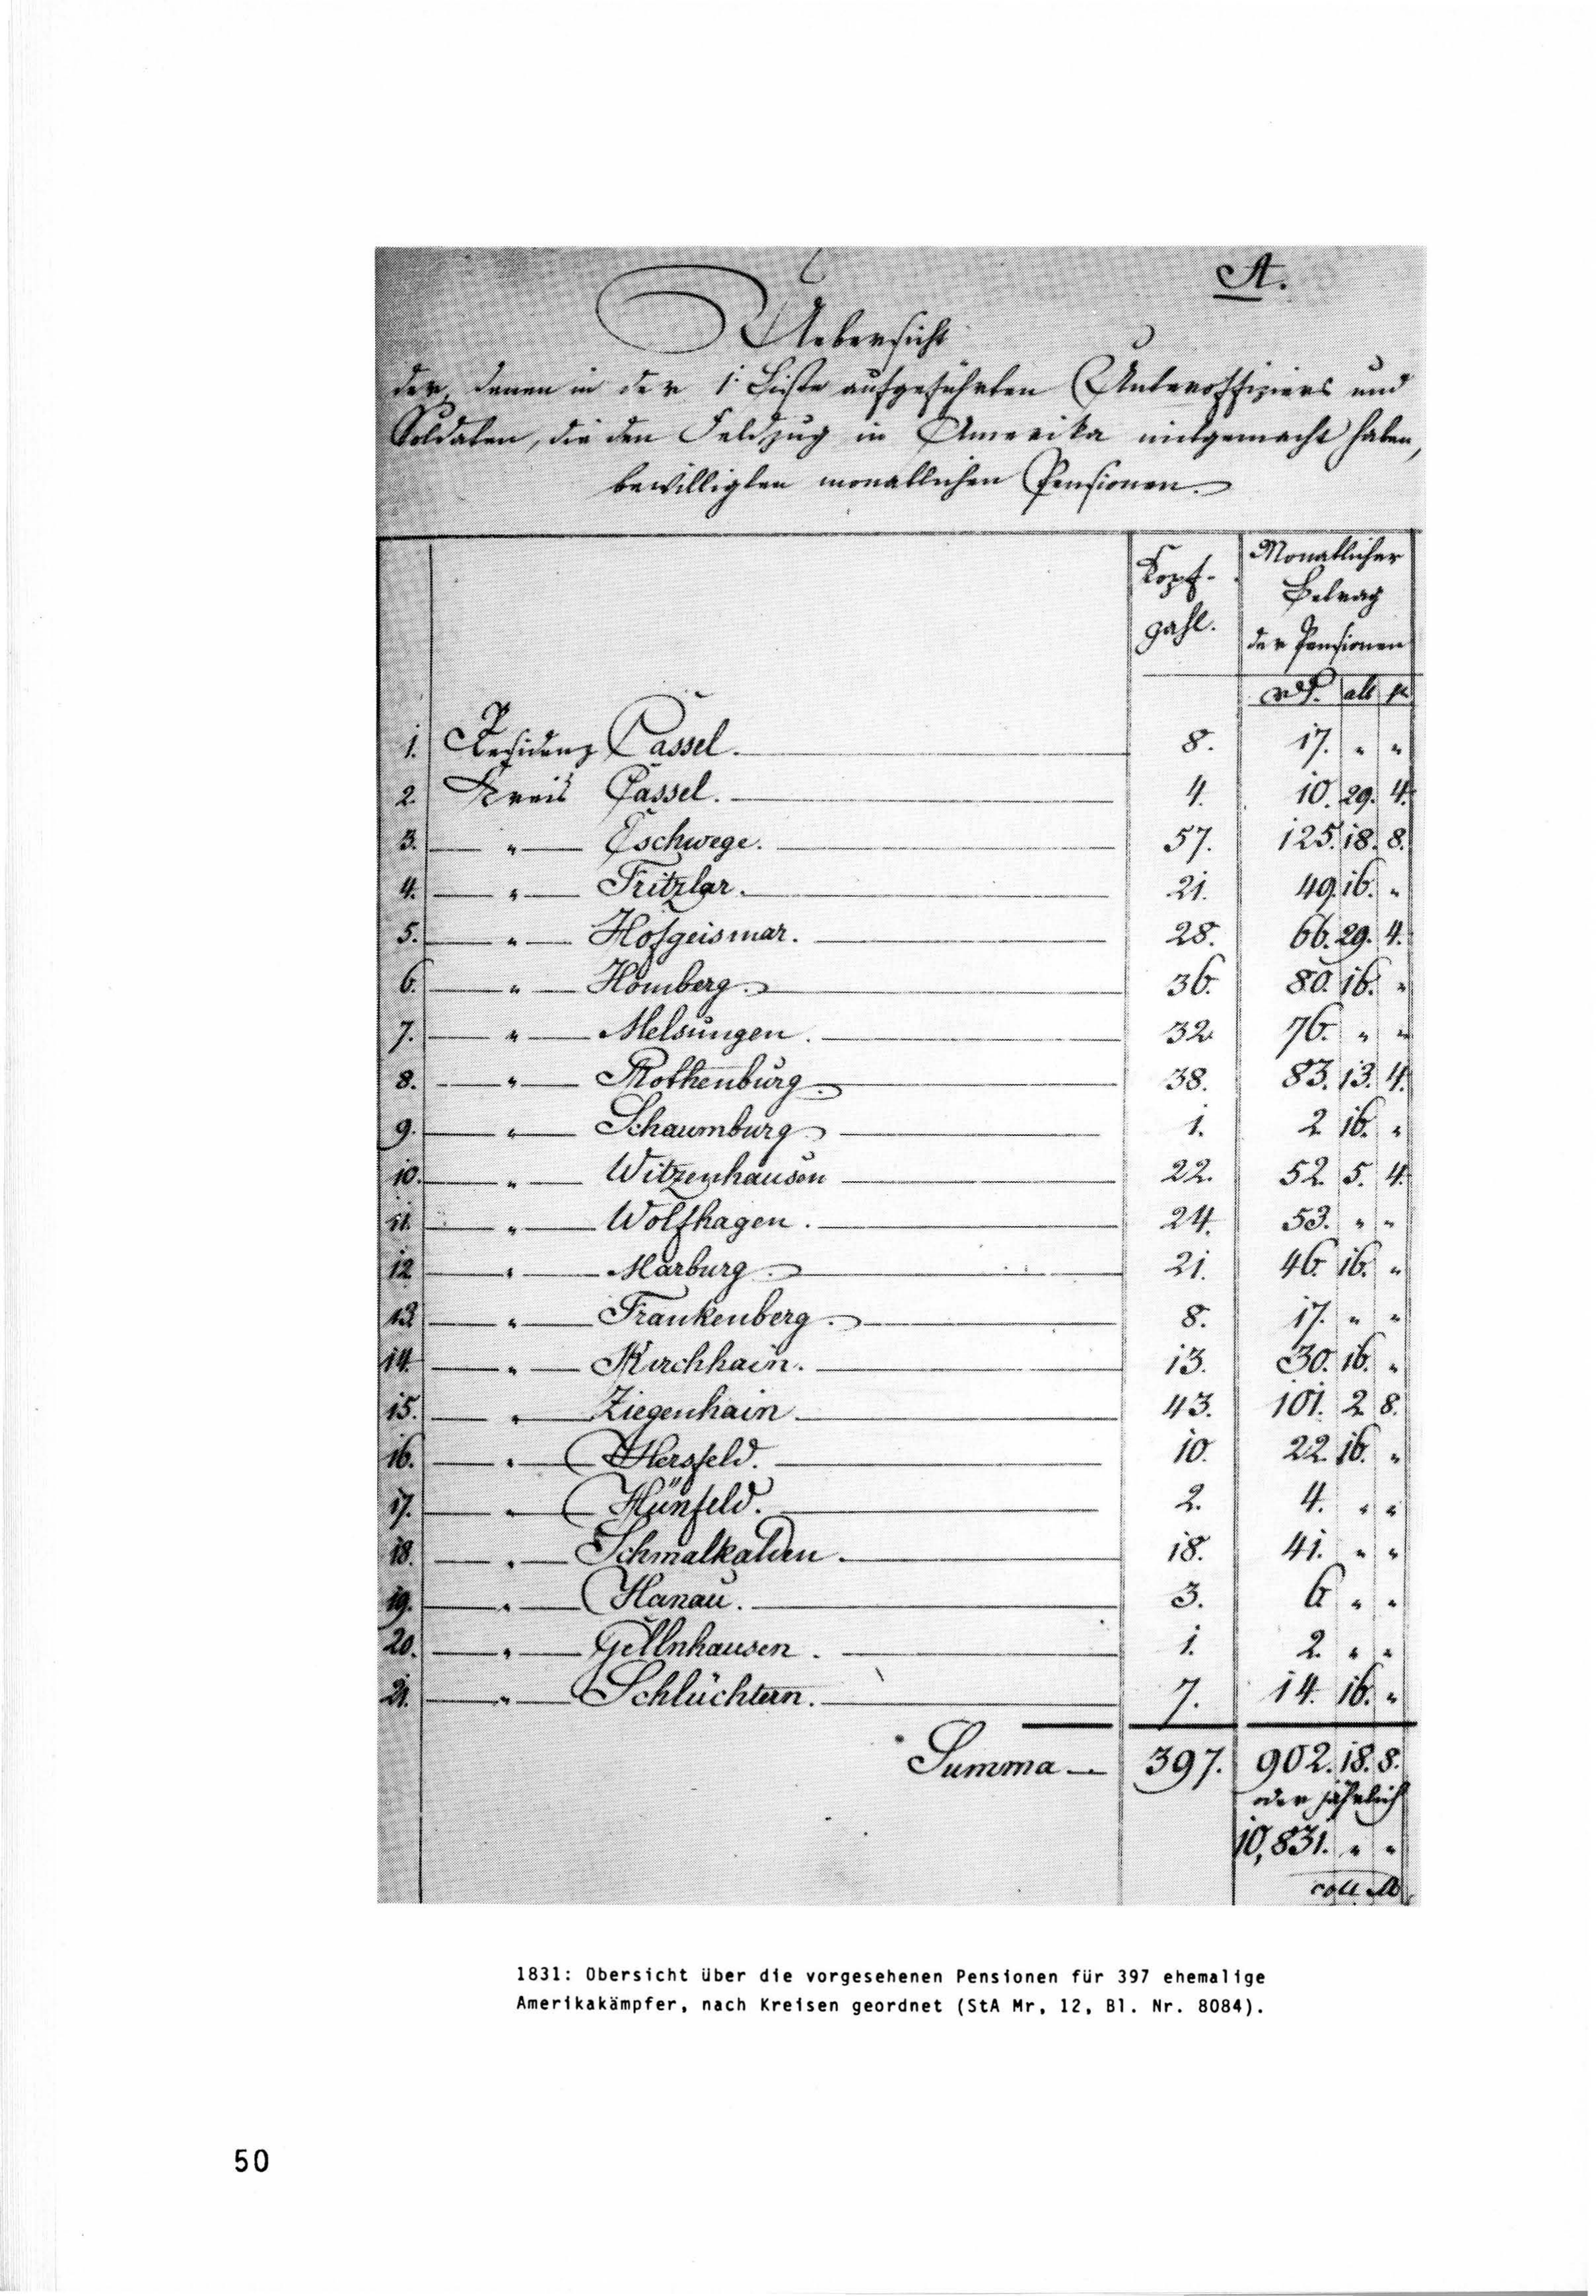 A.
Uebersicht
der, denen in der 1. Liste aufgeführten Unteroffiziers und
Soldaten, die den Feldzug in Amerika mitgemacht haben,
bewilligten monatlichen Pensionen.
Kopf-
zahl.
Monatlicher
Betrag
der Pensionen
alb
1. Residenz Cassel. 8. 17. " "
2. Kreis Cassel. 4. 10. 29. 4.
3. " Eschwege. 57. 125. 18. 8.
4. " Fritzlar. 21. 49. 16. "
5. " Hofgeismar. 28. 66. 29. 4.
6. " Homberg. 36. 80. 16. "
7. " Melsungen. 32. 76. " "
8. " Rothenburg. 38. 83. 13. 4.
9. " Schaumburg 1. 2. 16. "
10. " Witzenhausen 22. 52. 5. 4.
11. " Wolfhagen. 24. 53. " "
12. " Marburg. 21. 46. 16. "
13. " Frankenberg. 8. 17. " "
14. " Kirchhain. 13. 30. 16. "
15. " Ziegenhain 43. 101. 2. 8.
16. " Hersfeld. 10. 22. 16. "
17. " Hünfeld. 2. 4. " "
18. " Schmalkalden. 18. 41. " "
19. " Hanau. 3. 6 " "
20. " Gellnhausen. 1. 2. " "
21. " Schlüchtern. 7. 14. 16. "
Summa 397. 902. 18. 8.
oder jährlich
10,831. " "
coll.
1831: Obersicht über die vorgesehenen Pensionen für 397 ehemalige
Amerikakämpfer, nach Kreisen geordnet (StA Mr, 12, Bl. Nr. 8084).
50